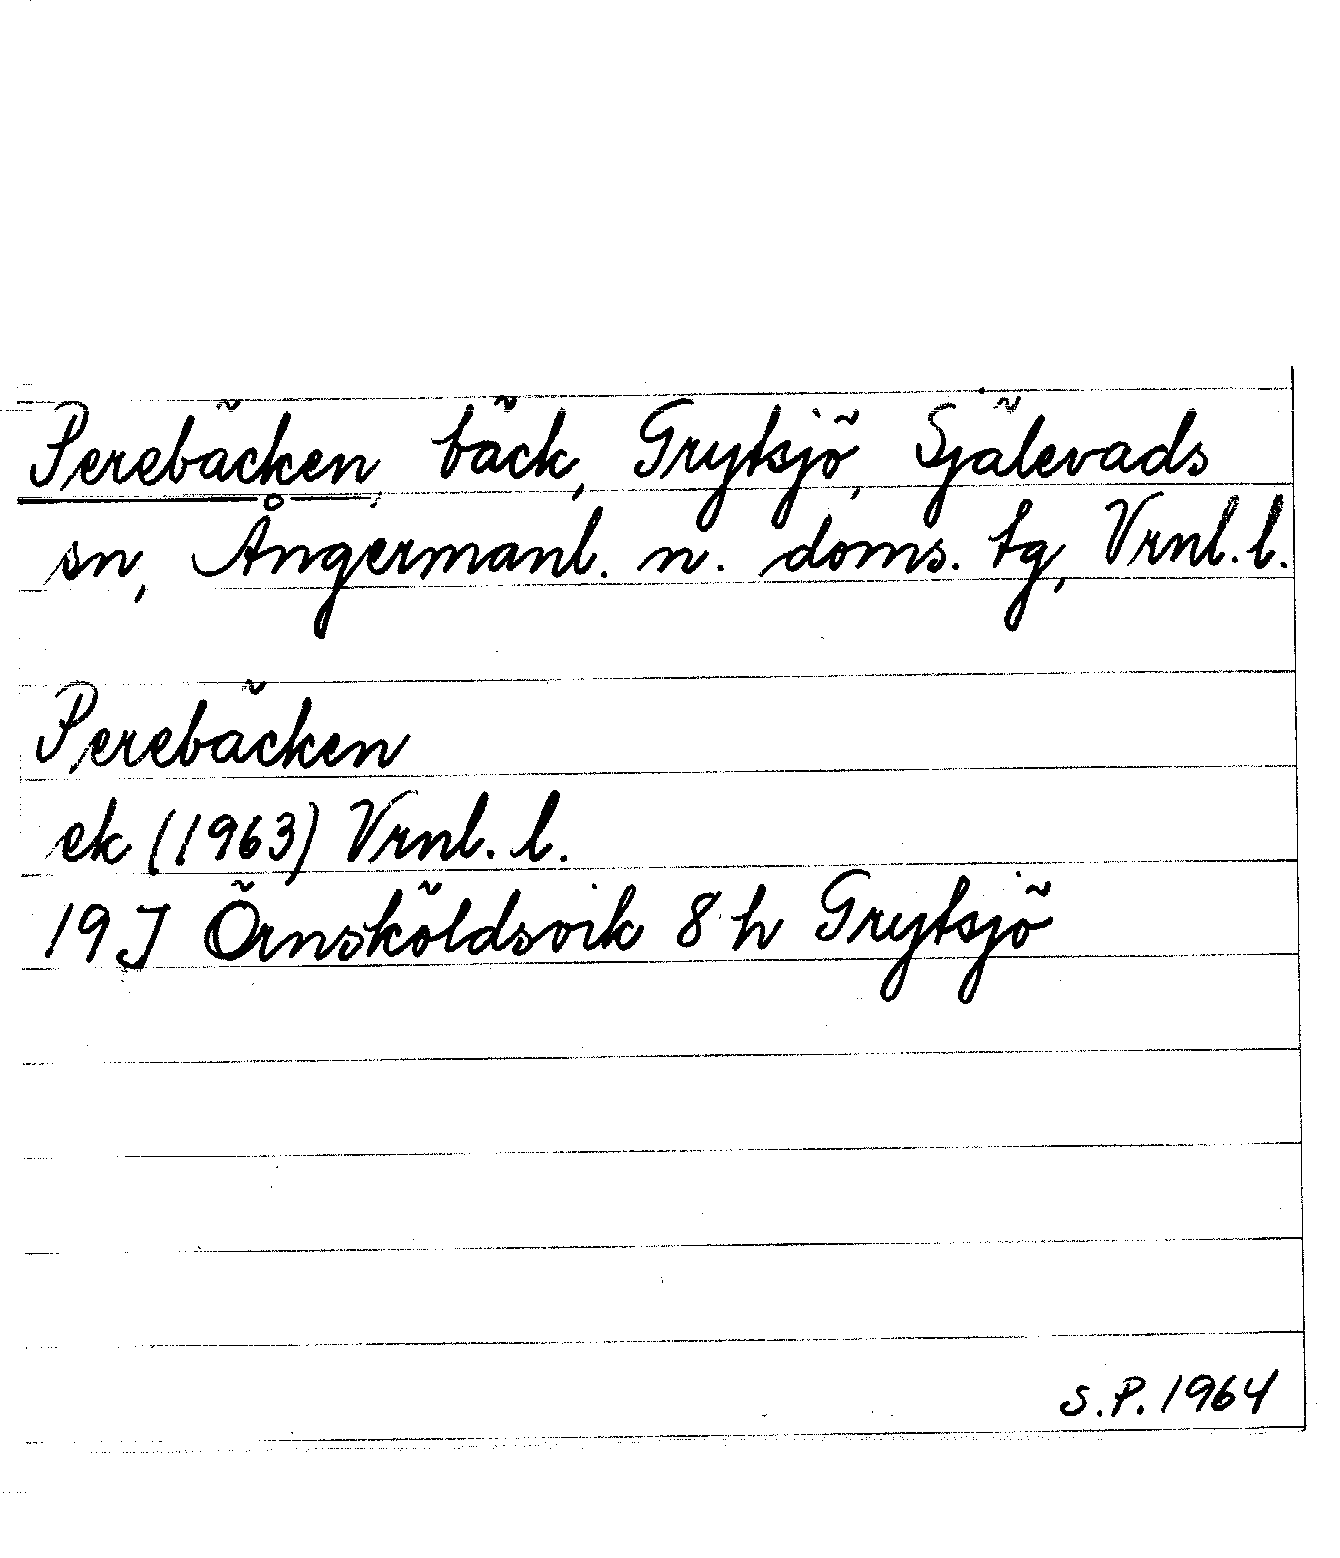 Perebäcken, bäck, Grytsjö, Själevads
sn, Ångermanl. n. doms. tg, Vrnl. l.
Perebäcken
ek (1963) Vrnl. l.
19J Örnsköldsvik 8 h Grytsjö
S.P. 1964